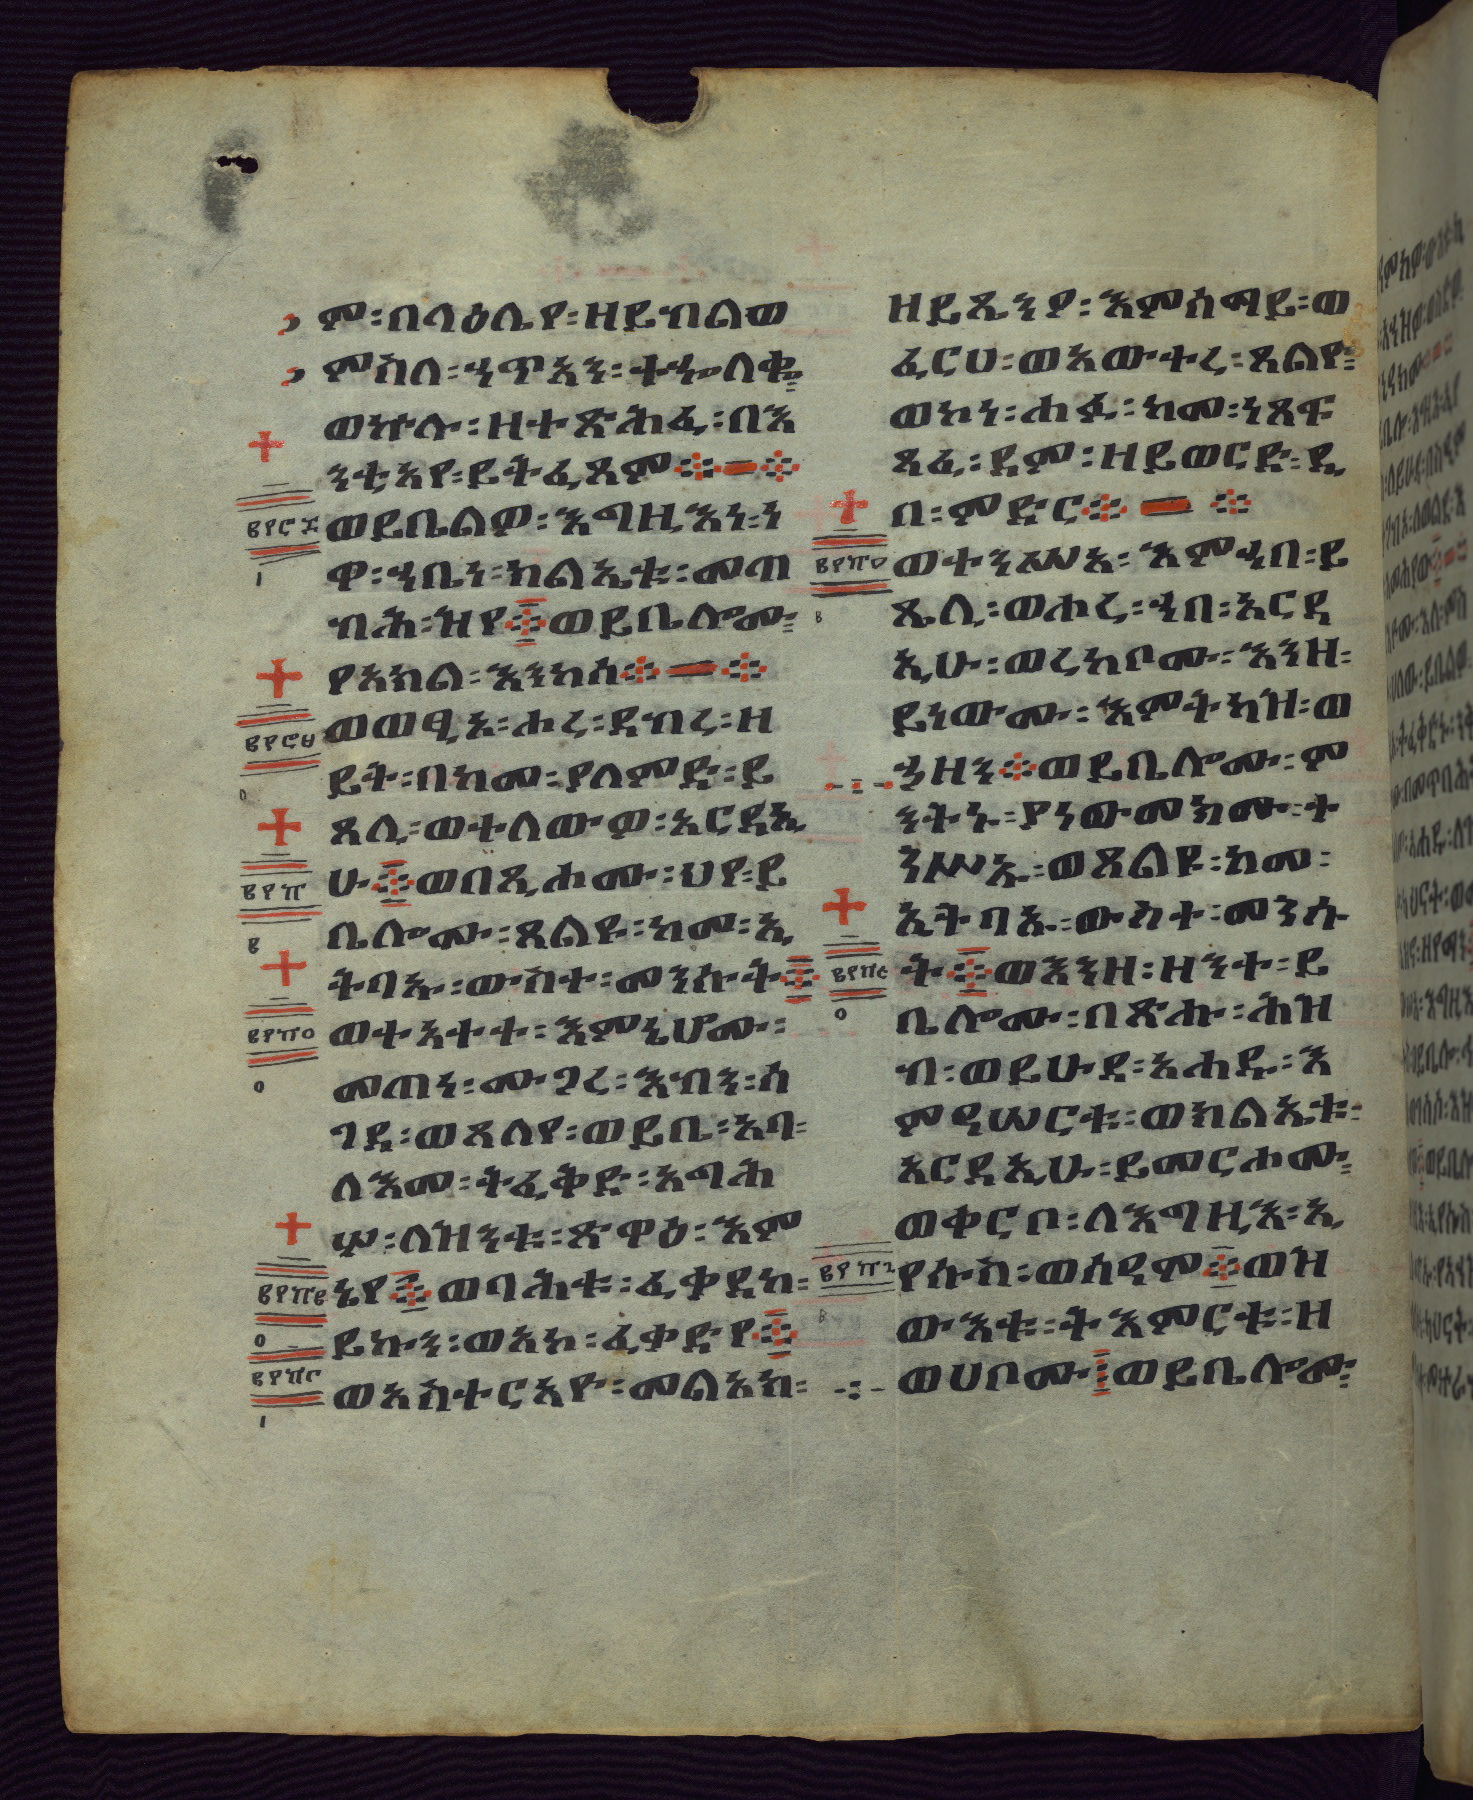 ም፡በላዕሌየ፡ዘይብልወ
ምስለ፡ኃጥኣን፡ተኆለቈ፡
ወኵሉ፡ዘተጽሕፈ፡በእ
ንቲአየ፡ይትፌጸም
ወይቤልዎ፡እግዚእነ፡ነ
ዋ፡ኃቤነ፡ክልኤቱ፡መጣ
ብሕ፡ዝየ፨ወይቤሎሙ፡
የአክል፡እንከሰ፨
ወወፂኦ፡ሐረ፡ደብረ፡ዘ
ይት፡በከመ፡ያለምድ፡ይ
ጸሊ፡ወተለውዎ፡አርዳኢ
ሁ፨ወበጺሖሙ፡ህየ፡ይ
ቤሎሙ፡ጸልዩ፡ከመ፡ኢ
ትባኡ፡ውስተ፡መንሱት፨
ወተአተተ፡እምኔሆሙ፡
መጠነ፡ሙጋረ፡እብን፡ሰ
ገደ፡ወጸለየ፡ወይቤ፡አባ፡
ለእመ፡ትፈቅድ፡አግሕ
ሦ፡ለዝንቱ፡ጽዋዕ፡እም
ኔየ፨ወባሕቱ፡ፈቃደከ፡
ይኩን፡ወአኮ፡ፈቃድየ፨
ወአስተርአዮ፡መልአክ፡
ዘይጼንዖ፡እምሰማይ፡ወ
ፈርሀ፡ወአውተረ፡ጸልዮ፡
ወኮነ፡ሐፉ፡ከመ፡ነጸፍ
ጻፈ፡ደም፡ዘይወርድ፡ዲ
በ፡ምድር፨
ወተንሥአ፡እምኃበ፡ይ
ጼሊ፡ወሐረ፡ኃበ፡አርዳ
ኢሁ፡ወረከቦሙ፡እንዘ፡
ይነውሙ፡እምትካዝ፡ወ
ኃዘን፨ወይቤሎሙ፡ም
ንትኑ፡ያነውመክሙ፡ተ
ንሥኡ፡ወጸልዩ፡ከመ፡
ኢትባኡ፡ውስተ፡መንሱ
ት፨ወእንዘ፡ዘንተ፡ይ
ቤሎሙ፡በጽሑ፡ሕዝ
ብ፡ወይሁዳ፡አሐዱ፡እ
ምዓሠርቱ፡ወክልኤቱ፡
አርዳኢሁ፡ይመርሖሙ፡
ወቀርቦ፡ለእግዚእ፡ኢ
የሱስ፡ወሰዓሞ፨ወዝ
ውእቱ፡ትእምርቱ፡ዘ
ወሀቦሙ፡ወይቤሎሙ፡